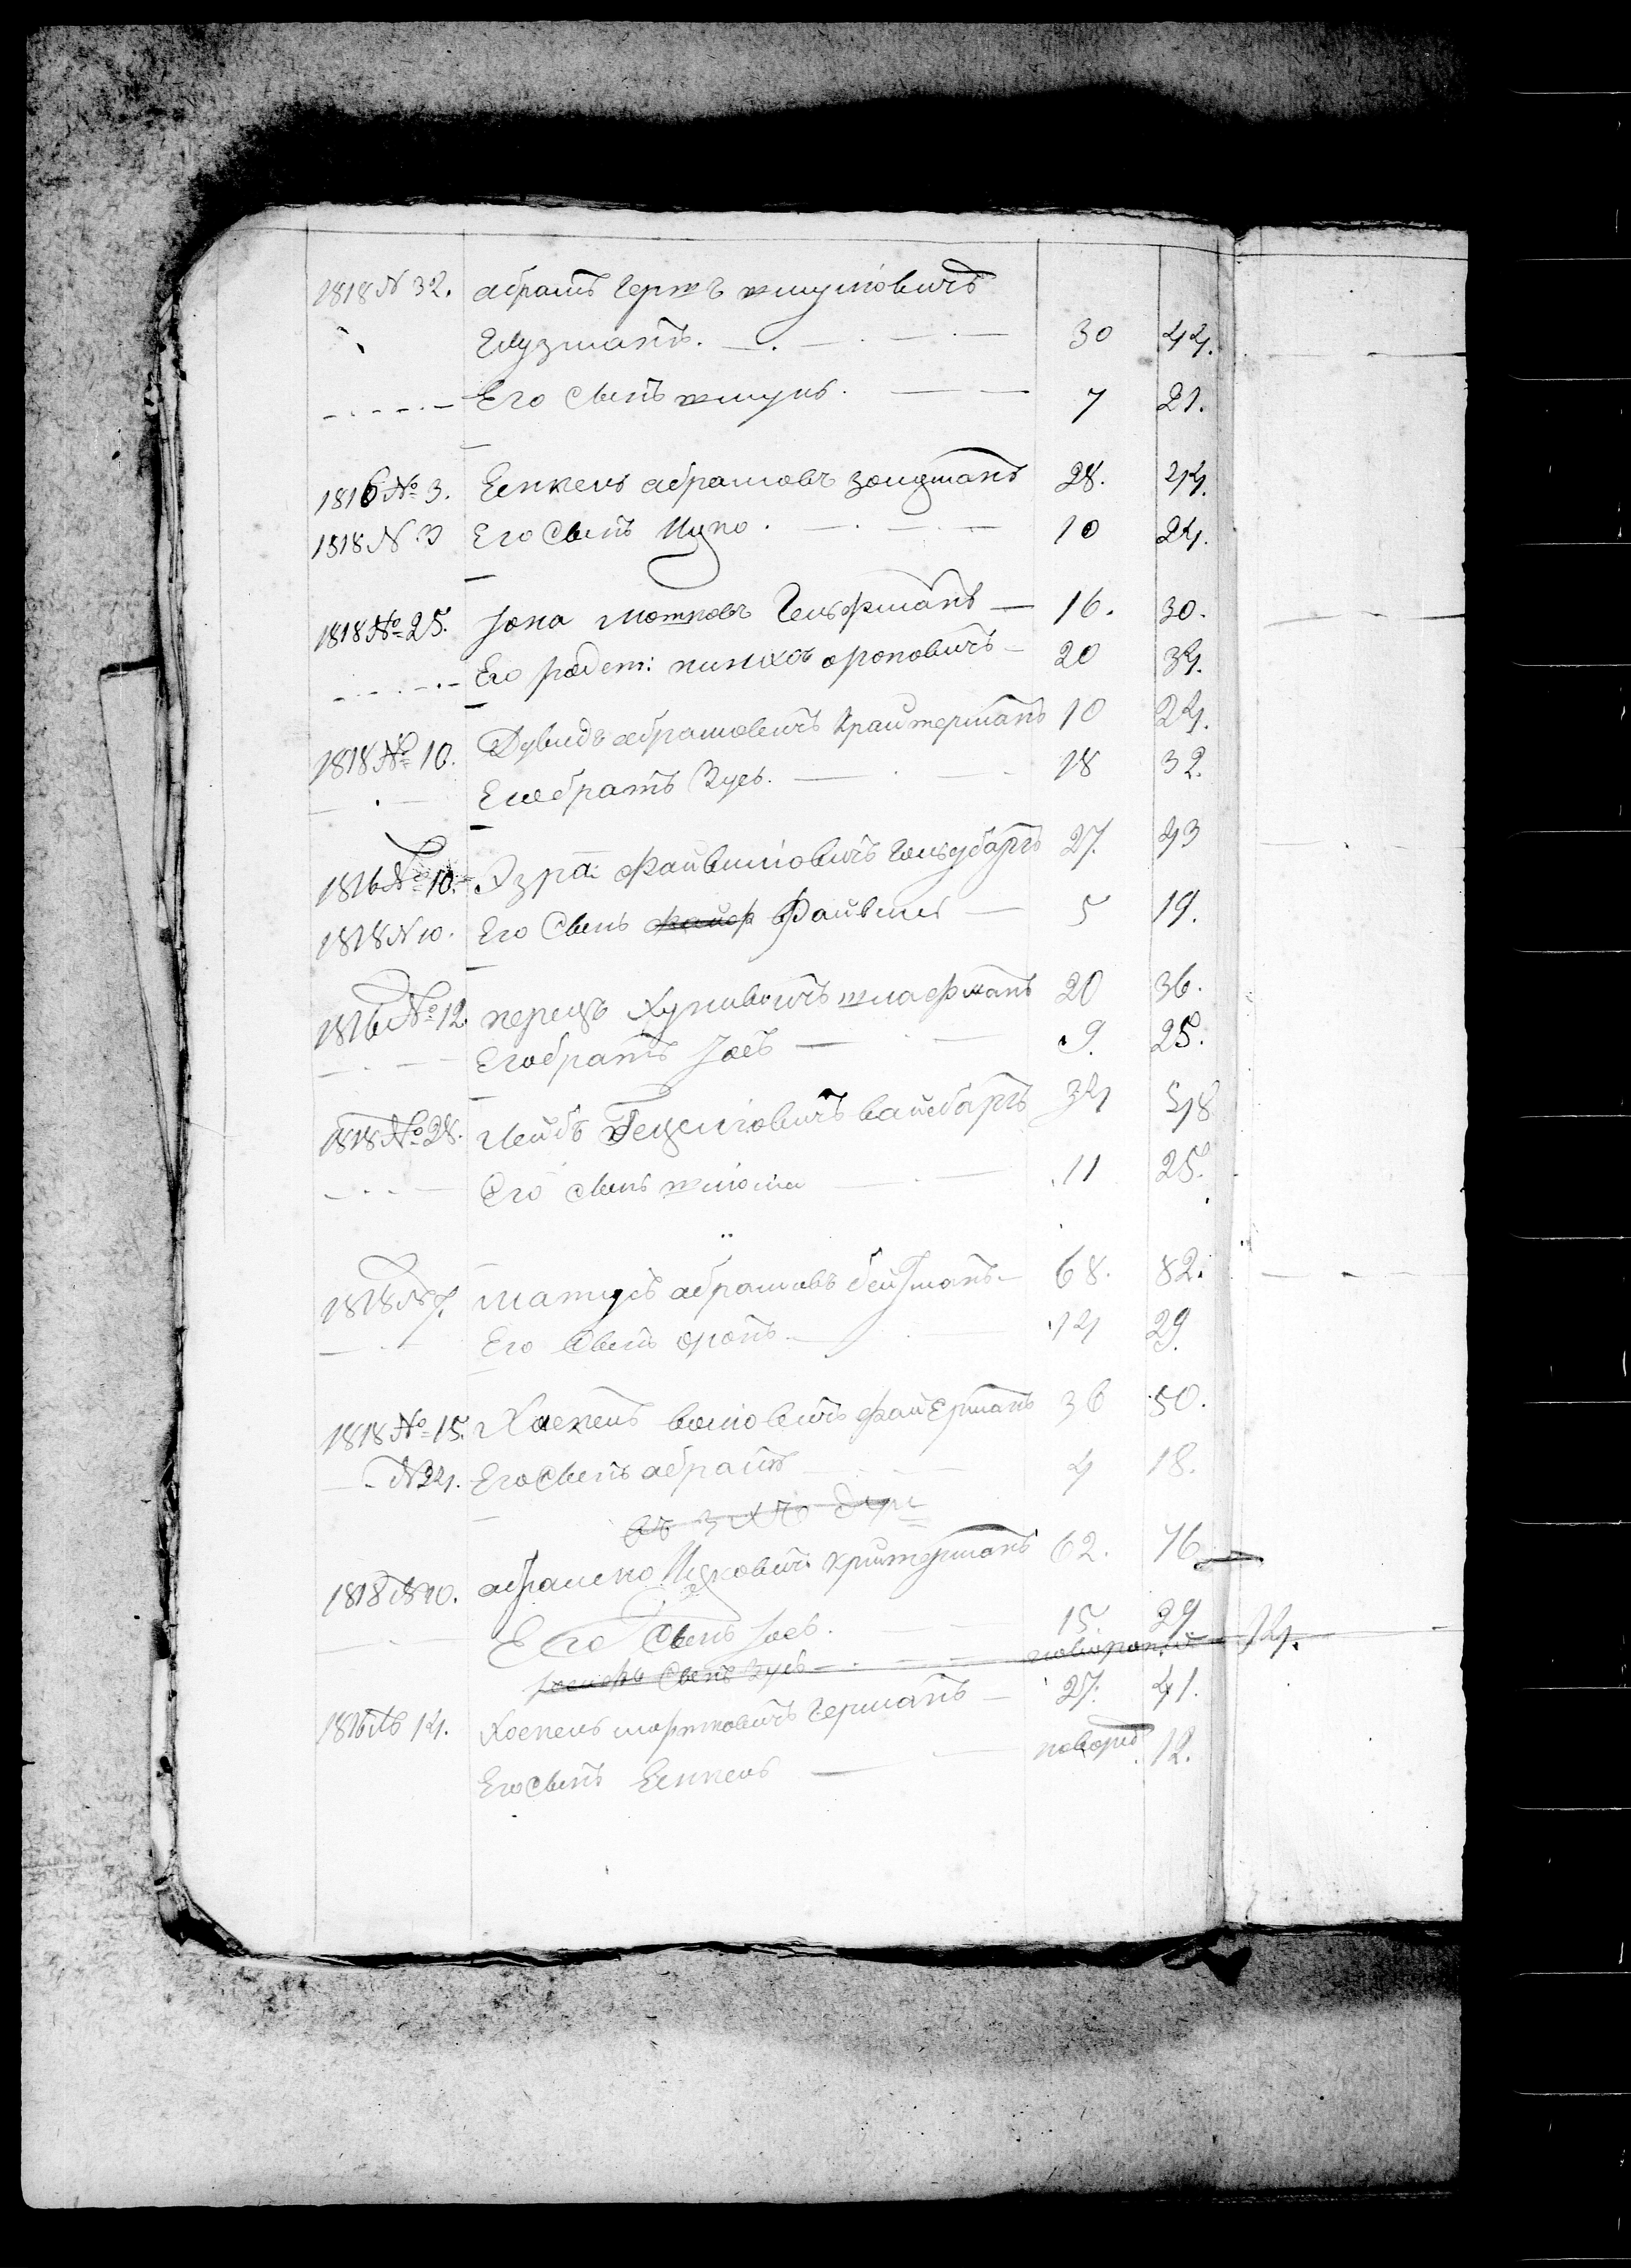 1818 N 32. абрамъ Герш ъ шмуліовичъ
Глузманъ. 30 44.
Его Сынъ шмуль. 7 21.
1816 № 3. Еснкель абрамовъ зонгманъ 28. 44.
1818 N 3 Его Сынъ Ицко. 10 24.
1818 № 25. Іона Мошковъ Гельфманъ 16. 30.
Его родст: пинхасъ ароновичъ 20 34.
1818 № 10. Дувидъ абрамовичъ Крайтерманъ 10 24.
Его братъ Зусь. 18 32.
1816 № 10. Эзра: Файвишовичъ Гольдбаргъ 27. 43
1818 N 10. Его Сынъ Файвишъ 5 19.
1816 № 12. перецъ шлафманъ 20 36.
Его братъ Іосъ 9. 25.
1818 № 28. Лейбъ Гецеліовичъ вайсбаргъ 34 48
Его сынъ шліома 11 25.
1818 N 7. Матусъ абрамовъ 68. 82.
Его Сынъ оронъ 14 29.
1818 № 15. Хаскель воліовичъ файерманъ 36 50.
N 24. Его Сынъ абрамъ 4 18.
1818 N 10. абрамко Ицковичъ критерманъ 62. 76
Его Сынъ Іосъ. 15. 29
Сынъ Зусь 14.
1816 № 14. Хаскель Германъ 27. 41.
Его Сынъ Еснкель новорж 12.